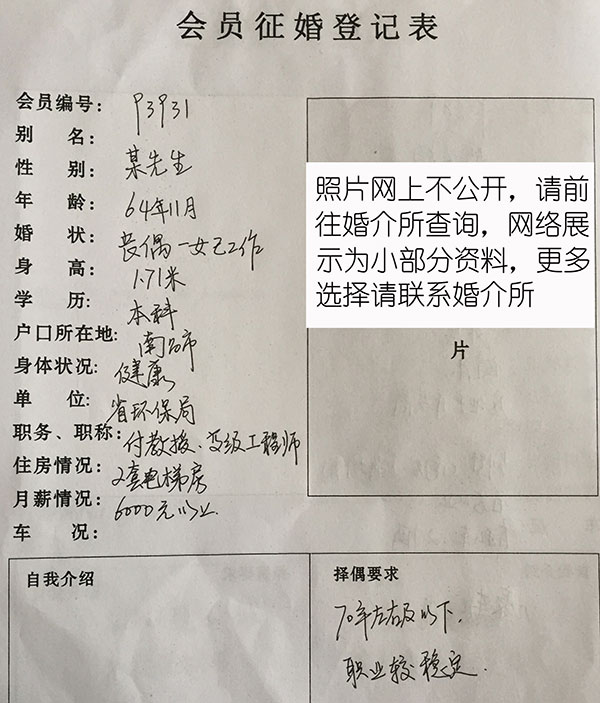 会员征婚登记表
会员编号: P3931
别 名:
性 别: 某先生
年 龄: 64年11月
婚 状: 丧偶 一女已工作
身 高: 1.71米
学 历: 本科
户口所在地: 南昌市
身体状况: 健康
单 位: 省环保局
职务、职称: 付教授、高级工程师
住房情况: 2套电梯房
月薪情况: 6000元以上
车 况:
照片网上不公开，请前
往婚介所查询，网络展
示为小部分资料，更多
选择请联系婚介所
片
自我介绍
择偶要求
70年左右及以下.
职业较稳定.